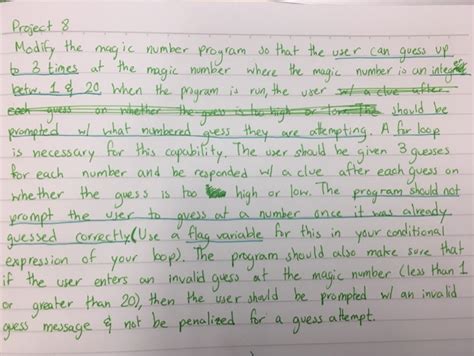 Project 8
Modify the magic number program so that the user can guess up
to 3 times at the magic number where the magic number is an integer
betw. 1 & 20. When the program is run, the user w/ a clue after
each guess on whether the guess is too high or low. The should be
prompted w/ what numbered guess they are attempting. A for loop
is necessary for this capability. The user should be given 3 guesses
for each number and be responded w/ a clue after each guess on
whether the guess is too high or low. The program should not
prompt the user to guess at a number once it was already
guessed correctly. (Use a flag variable for this in your conditional
expression of your loop). The program should also make sure that
if the user enters an invalid guess at the magic number (less than 1
or greater than 20), then the user should be prompted w/ an invalid
guess message & not be penalized for a guess attempt.